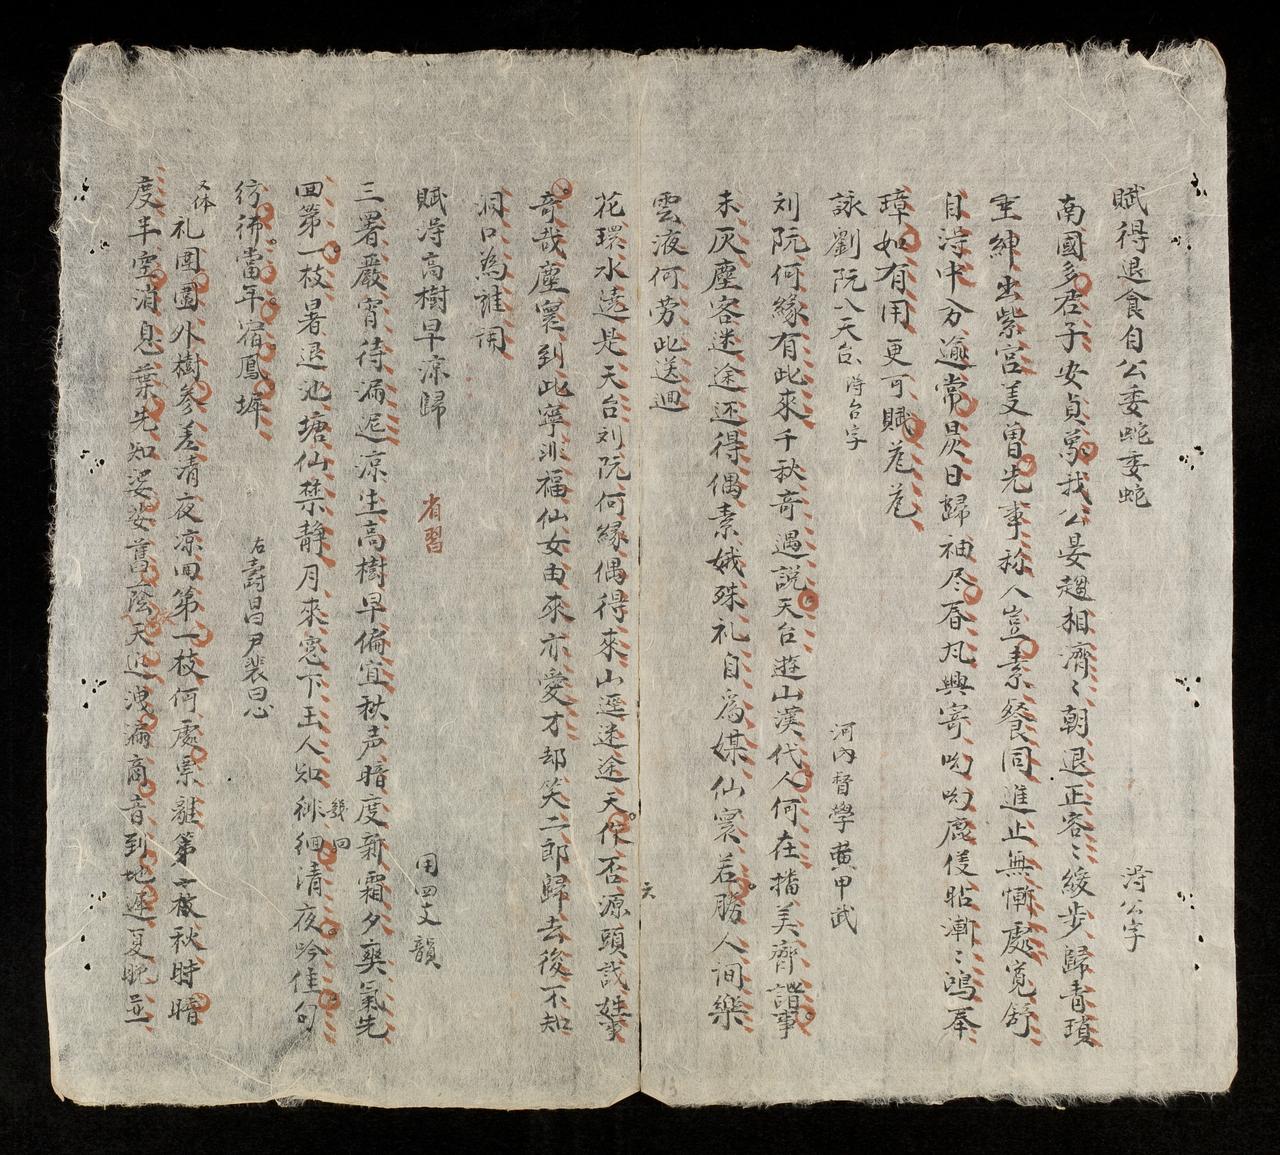 賦得退食自公委蛇委蛇 得公字
南國多君子安貞萬找公晏趨相濟〻朝退正容〻緩步歸青瑣
垂紳出紫宮羙曽先事称人豈素餐同進止無慚處寛舒
自淂中分逾常昃日歸袖尽春凡興寄呦呦鹿僊漸〻鴻奉
璋如有用更可賦芃芃
詠劉阮入天台 得台字 河內督學黄甲武
刘阮何緣有此來千秋竒遇説天台遊山漢代人何在搔美齊諧事
未灰塵客迷途还得偶素娥殊礼自為媒仙寰若勝人间樂
雲液何劳此送迴
花環水遶是天台刘阮何緣偶得來山逕迷途天作否源頭識姓事
竒哉塵寰到此寧非福仙女由來亦愛才却笑二郎歸去後不知
洞口為誰開
賦淂高樹早涼歸 省習 用四支韻
三署嚴宵待漏遲涼生高樹早偏宜秋声暗度新霜夕爽氣先
回第一枝暑退池塘仙禁静月來窓下玉人知徘徊清夜吟佳句 幾回
彷彿當年宿鳳墀 右壽昌尹裴思
又体 礼圍園外樹參差清夜凉回第一枝何處景離第一枝秋時暗
度半空消息葉先知婆娑舊蔭天邊洩漏商音到地遲夏晚並一